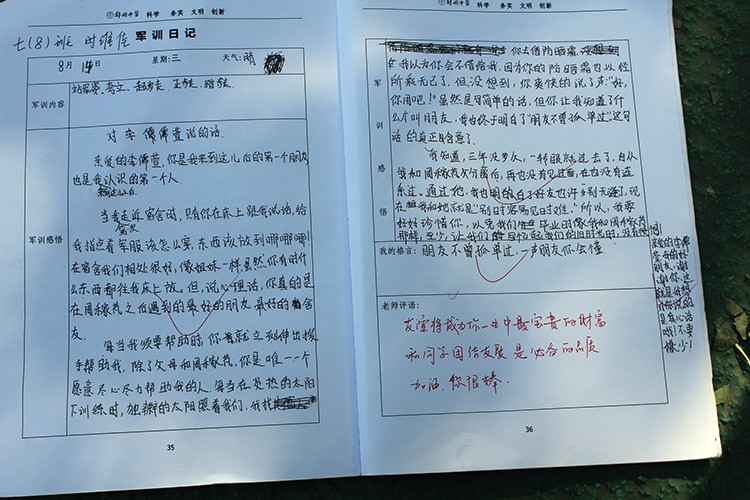 郑州中学 科学 务实 文明 创新
七(8)班 时维佳 军训日记
8月 14日 星期:三 天气:晴
军训内容
站军姿、蹲立、起步走、正步走、踏步走
军训感悟
对李佩萱说的话
亲爱的李佩萱,你是我来到这儿后的第一个朋友
也是我认识的第一个人。
当我走近宿舍时,只有你在床上跟我说话,给
我指点着军服该怎么穿,东西该放到哪哪哪!
在宿舍我们相处很好,像姐妹一样虽然你有时什
么东西都往我床上放。但,说心理话,你真的是
在周稼芃之后遇到的最好的朋友,最好的舍
友。
每当我须要帮助时,你就立刻伸出援
手帮助我,除了父母和周稼芃,你是唯一一个
愿意尽心尽力帮助我的人。每当在炎热的太阳
下训练时,独辣的太阳照着我们,我找
35
郑州中学 科学 务实 文明 创新
军训感悟
你去借防晒霜,
我以为你会不借给我,因为你的防晒霜也以经
所剩无己了。但没想到,你爽快的说了声:“好,
你用吧!”虽然是司简单的话,但你让我知道了什
么个叫朋友,我也终于明白了“朋友不曾孤单过”这句
话的真正含意了。
我知道,三年没多久,一转眼就过去了,自从
我和周稼芃分离后,再也没有见过面,在也没有连
系过。通过她,我也明白了好友也许多别无逢,现
在我和她就是“别时容易见时难。”所以,我要
好好珍惜你,以免我们毕业时像我和周稼芃
那样,至少,让我们
我的格言: 朋友不曾孤单过,一声朋友你会懂
老师评语:
友谊将成为你一生中最宝贵的财富
和同学团结友爱是必备的品质
加油,你很棒.
亲爱的李佩
萱,我的好
朋友,谢
谢你,这
就是我想
对你说的
是真心话
哦!不要
36